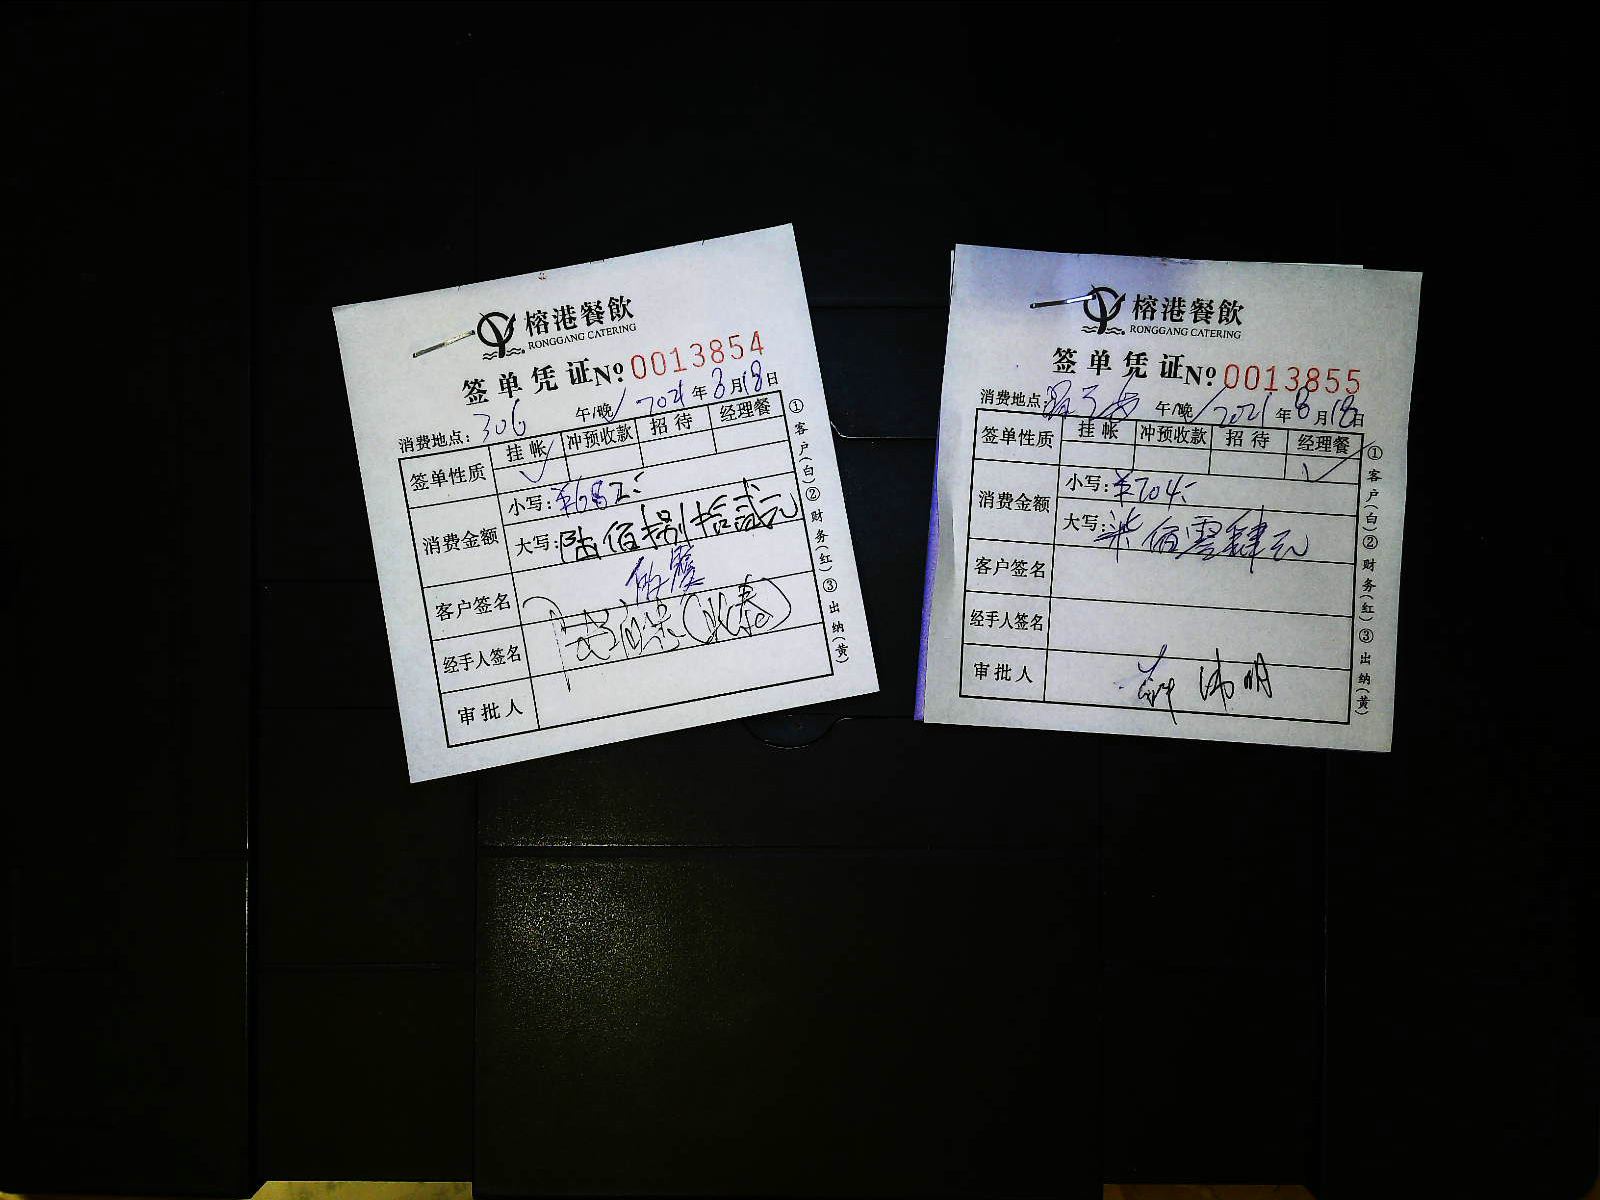 榕港餐飲
RONGGANG CATERING
签单凭证 № 0013854
消费地点：306 午/晚 2021年8月18日
签单性质 挂帐 冲预收款 招待 经理餐
消费金额 小写：¥682
大写：陆佰捌拾贰元
客户签名
经手人签名
审批人
①客户(白)②财务(红)③出纳(黄)
榕港餐飲
RONGGANG CATERING
签单凭证 № 0013855
消费地点 午/晚 2021年8月18日
签单性质 挂帐 冲预收款 招待 经理餐
消费金额 小写：¥704
大写：柒佰零肆元
客户签名
经手人签名
审批人
①客户(白)②财务(红)③出纳(黄)